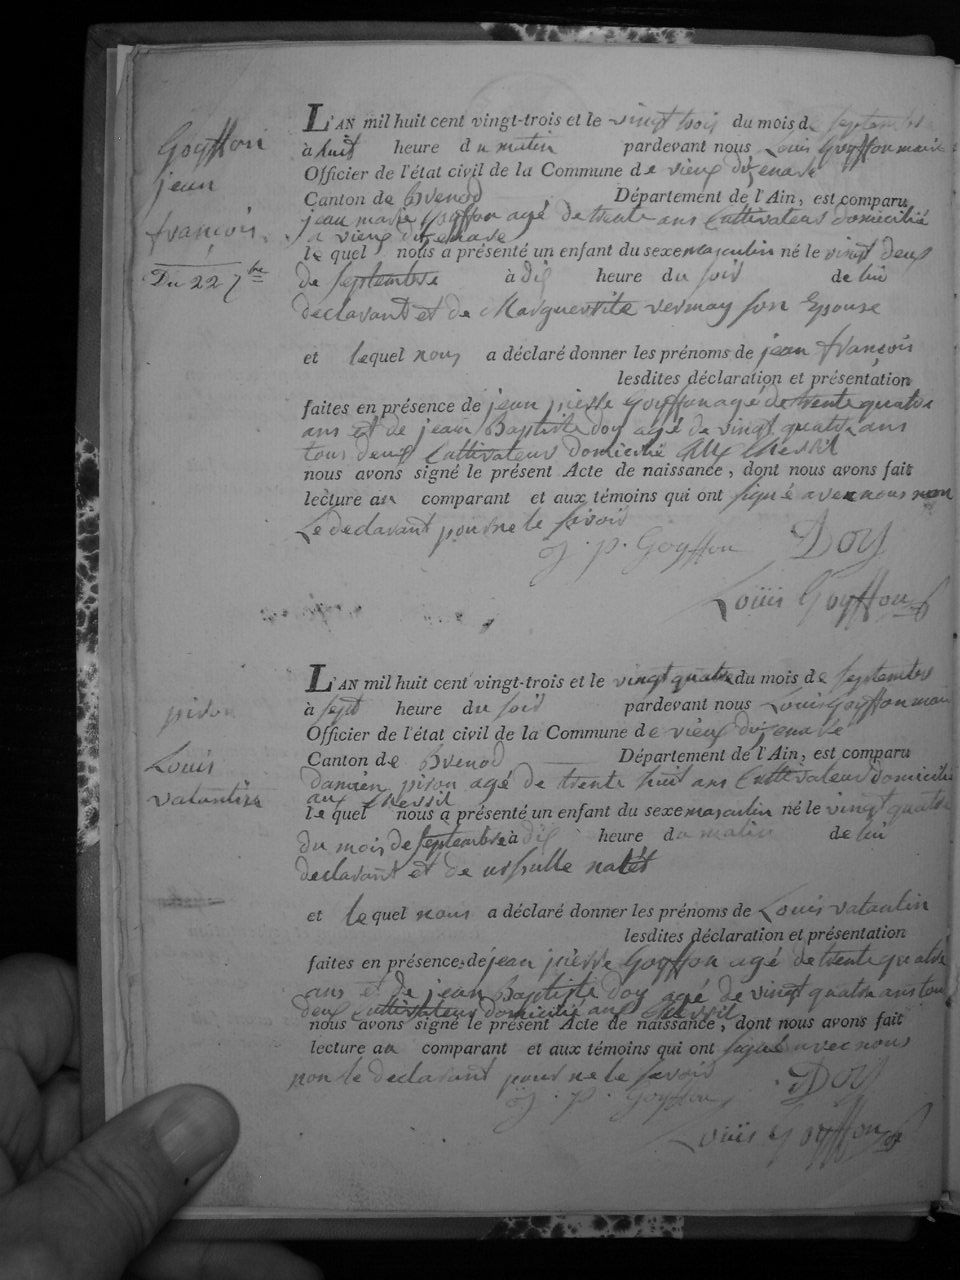 Goyffon
jean
françois
Du 22 7bre
L'AN mil huit cent vingt-trois et le vingt trois du mois de septembre
à huit heure du matin pardevant nous Louis Goyffon maire
Officier de l'état civil de la Commune de vieux dizenave
Canton de Brenod Département de l'Ain, est comparu
jean marie Goyffon agé de trente ans Cultivateur domicilié
a vieux dizenave
lequel nous a présenté un enfant du sexe masculin né le vingt deux
de septembre à dix heure du soir de lui
declarant et de Marguerite vernay son Epouse
et lequel nous a déclaré donner les prénoms de jean françois
lesdites déclaration et présentation
faites en présence de jean pierre goyffon agé de trente quatre
ans et de jean Baptiste doy agé de vingt quatre ans
tous deux Cultivateur domicilié aux
nous avons signé le présent Acte de naissance, dont nous avons fait
lecture au comparant et aux témoins qui ont signé avec nous non
Le declarant pour ne le savoir
J. p. Goyffon Doy
Louis Goyffon
piron
Louis
valantin
L'AN mil huit cent vingt-trois et le vingt quatre du mois de septembre
à sept heure du soir pardevant nous Louis Goyffon maire
Officier de l'état civil de la Commune de vieux dizenave
Canton de Brenod Département de l'Ain, est comparu
Damien piron agé de trente huit ans Cultivateur domicilié
aux
lequel nous a présenté un enfant du sexe masculin né le vingt quatre
du mois de septembre à dix heure du matin de lui
declarant et de ursulle
et lequel nous a déclaré donner les prénoms de Louis valantin
lesdites déclaration et présentation
faites en présence de jean pierre Goyffon agé de trente quatre
ans et de jean Baptiste doy agé de vingt quatre ans tou
deux Cultivateur domicilié aux
nous avons signé le présent Acte de naissance, dont nous avons fait
lecture au comparant et aux témoins qui ont signé avec nous
non le declarant pour ne le savoir
J. P. Goyffon Doy
Louis Goyffon